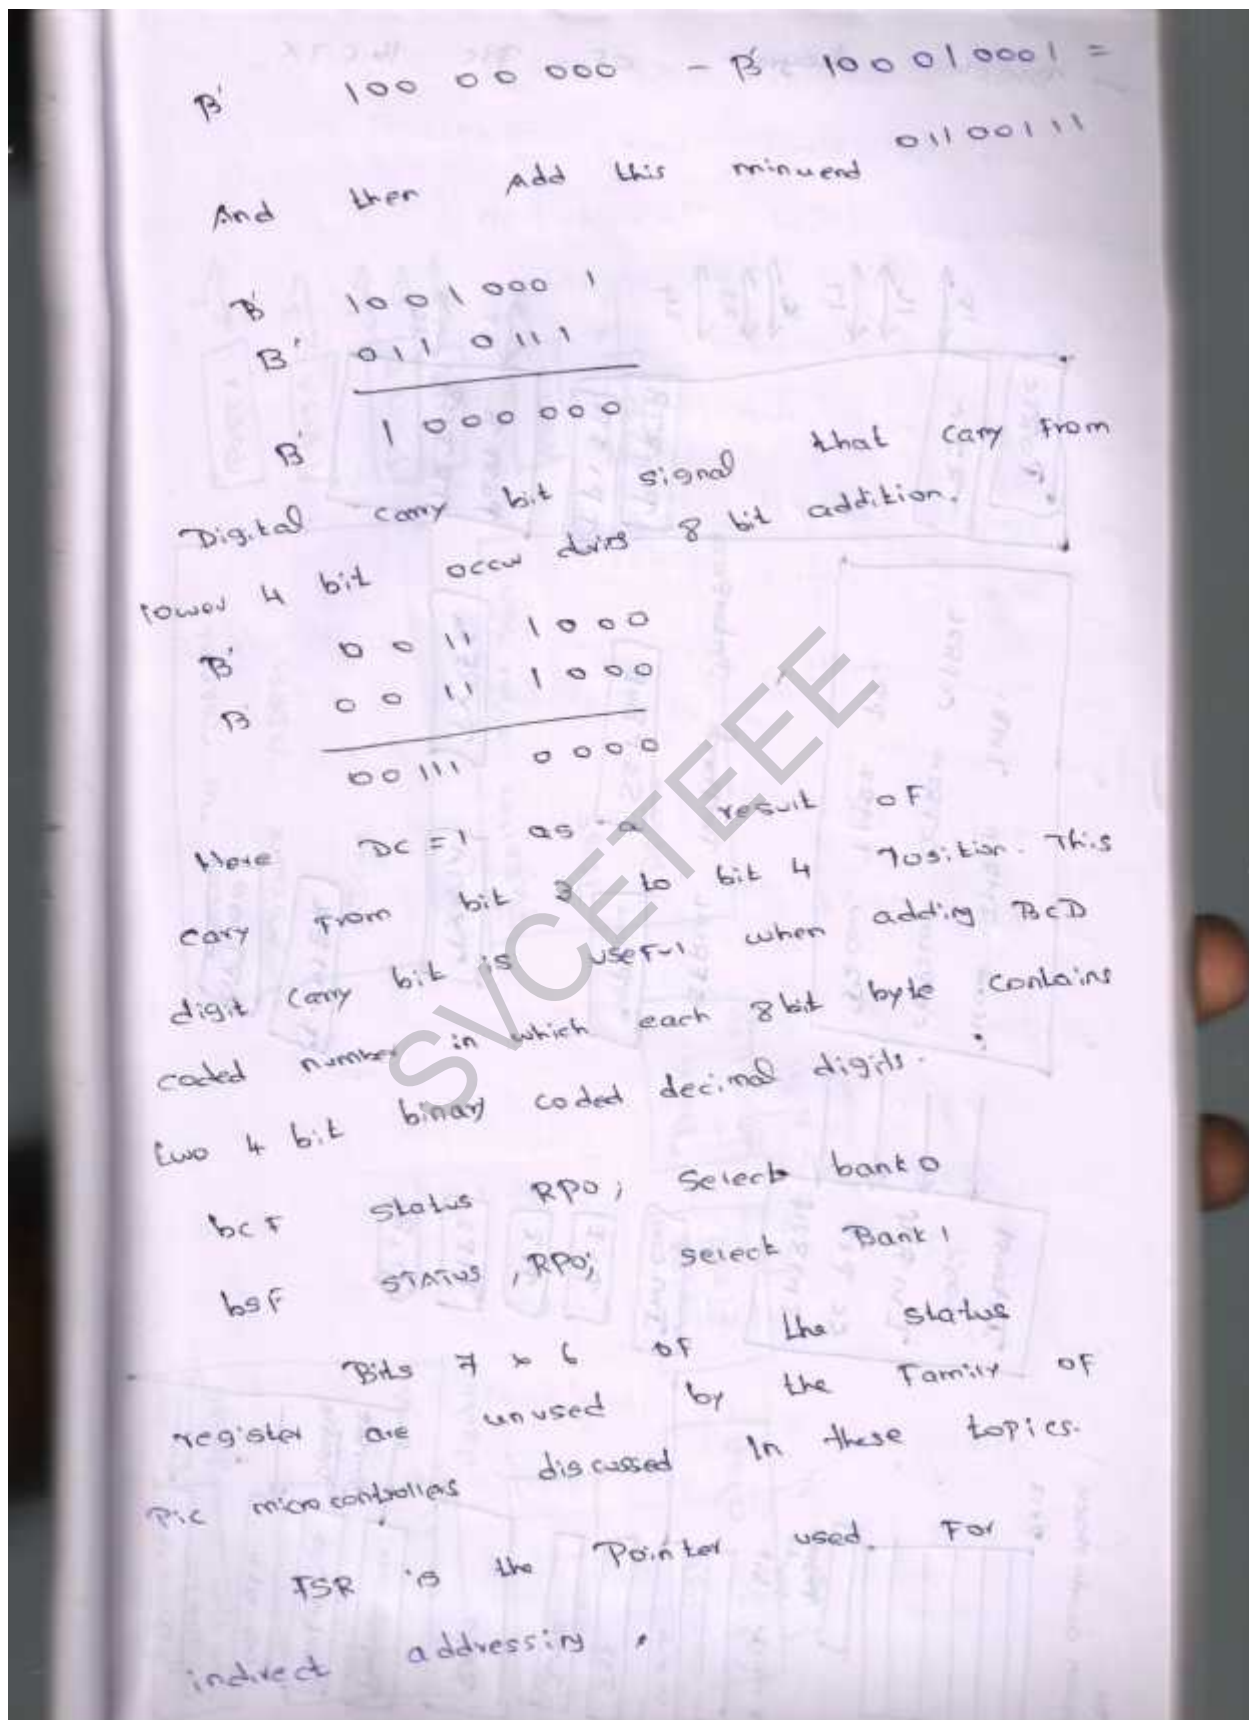 B' 100 00 000 - B' 10001 0001 =
01100111
And then Add this minuend
B' 1001000 1
B' 011 0111
B' 1000000
Digital carry bit signal that cary from
lower 4 bit occur 8 bit addition.
B' 0 0 11 1000
B 0 0 11 1000
00111 0000
Here DC = 1 as a result of
cary from bit 3 to bit 4 Position. This
digit carry bit is useful when adding BCD
coded number in which each 8 bit byte contains
two 4 bit binary coded decimal digits.
bcf status RPO; select bank 0
bsf STATUS, RPO; select Bank 1
Bits 7 6 of the status
register are unused by the Family of
Pic microcontrollers discussed In these topics.
FSR is the Pointer used. For
indirect addressing.
SVCETEEE